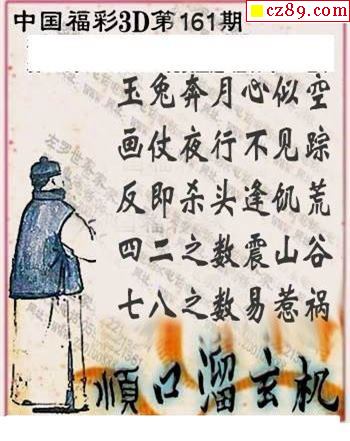 cz89.com
中国福彩3D第161期
玉兔奔月心似空
画仗夜行不见踪
反即杀头逢饥荒
四二之数震山谷
七八之数易惹祸
順口溜玄机